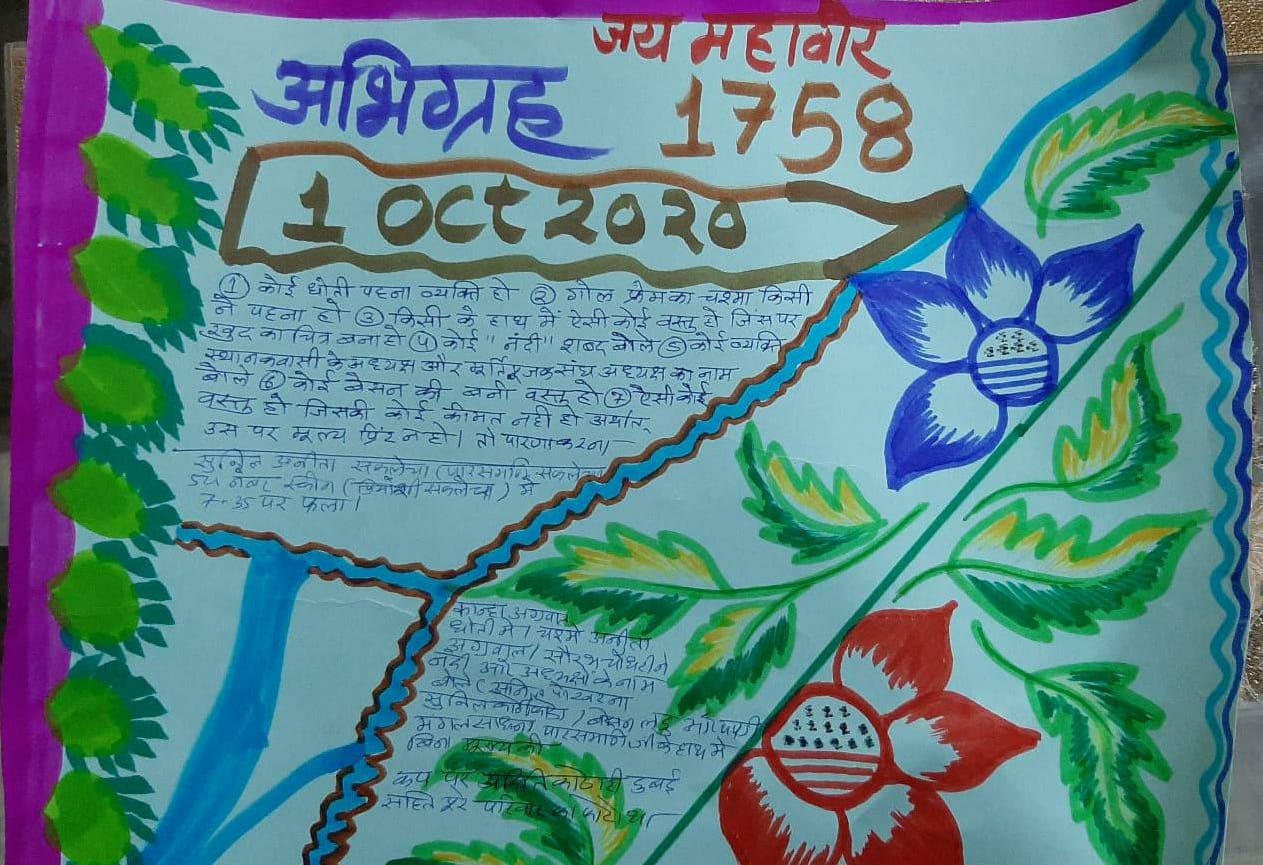 जय महावीर
अभिग्रह 1758
1 Oct 2020
① कोई धोती पहना व्यक्ति हो ② गोल फ्रेम का चश्मा किसी
ने पहना हो ③ किसी के हाथ में ऐसी कोई वस्तु हो जिस पर
खुद का चित्र बना हो ④ कोई "नंदी" शब्द बोले ⑤ कोई व्यक्ति
स्थानकवासी के अध्यक्ष और मूर्तिपूजक संघ अध्यक्ष का नाम
बोले ⑥ कोई बेसन की बनी वस्तु हो ⑦ ऐसी कोई
वस्तु हो जिसकी कोई कीमत नही हो अर्थात
उस पर मूल्य प्रिंट न हो। तो पारणा करना
अनीता सकलेचा
54 नंबर स्कीम ( सकलेचा) में
7-35 पर फला।
कान्हा अग्रवाल
धोती मे। चश्मे अनीता
अग्रवाल। सौरभ चौधरी ने
नंदी और अध्यक्षो के नाम
बोले
सुनिल
मंगल साधना / बेसन लड्डू
बिना मूल्य की
कप पर कोठारी दुबई
सहित पूरे परिवार का फोटो था